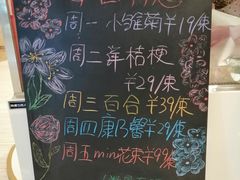 周一 小雏菊￥19/束
周二 洋桔梗
￥29/束
周三 百合￥39/束
周四 康乃馨￥29/束
周五 mini花束￥99/束